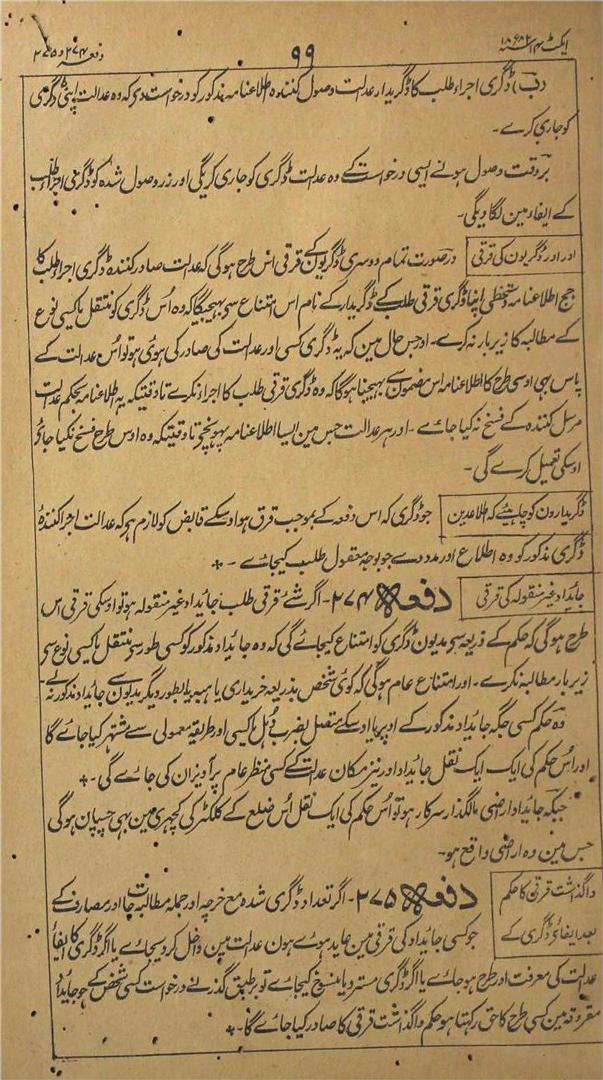 ایکٹ ۱۴ ۱۸۸۲ ۹۹ دفعہ ۲۷۴ و ۲۷۵
ڈگری اجراء طلب کا ڈگریدار عدالت وصول کنندہ اطلاعنامہ مذکور کو درخواست دی کہ وہ عدالت اپنی ڈگری
کو جاری کرے ۔
بروقت وصول ہونے ایسی درخواست کے وہ عدالت ڈگری کو جاری کریگی اور زر وصول شدہ کو ڈگری اجراء طلب
کے ایفاء مین لگاویگی۔
اور اور ڈگریون کی قرقی
درصورت تمام دوسری ڈگریون کے قرقی اس طرح ہوگی کہ عدالت صادر کنندہ ڈگری اجراء طلب کا
جج اطلاعنامہ دستخطی اپنا ڈگری قرقی طلب کے ڈگریدار کے نام اس امتناع سے بہیجیگا کہ وہ اُس ڈگری کو منتقل یا کسی نوع
کے مطالبہ کا زیربار نہ کرے ۔ اور جس حال مین کہ یہ ڈگری کسی اور عدالت کی صادر کی ہوئی ہو تو اُس عدالت کے
پاس بہی اوسی طرح کا اطلاعنامہ اس مضمون سے بہیجنا ہوگا کہ وہ ڈگری قرقی طلب کا اجرا نکرے تا وقتیکہ یہ اطلاعنامہ بحکم عدالت
مرسل کنندہ کے فسخ نہ کیا جائے ۔ اور ہر عدالت جس مین ایسا اطلاعنامہ پہونچے تا وقتیکہ وہ اوس طرح فسخ نکیا جائے
اوسکی تعمیل کرے گی ۔
ڈگریدارون کو چاہیئے کہ اطلاع دین
جو ڈگری کہ اس دفعہ کے بموجب قرق ہو اوسکے قابض کو لازم ہے کہ عدالت اجرا کنندہ
ڈگری مذکور کو وہ اطلاع اور مدد دے جو بوجہ معقول طلب کیجائے ۔
جائداد غیر منقولہ کی قرقی
دفعہ ۲۷۴ ۔ اگر شے قرقی طلب جائداد غیر منقولہ ہو تو اوسکی قرقی اس
طرح ہوگی کہ حکم کے ذریعہ سے مدیون ڈگری کو امتناع کیجائے گی کہ وہ جائداد مذکور کو کسی طور سے منتقل یا کسی نوع سے
زیربار مطالبہ نکرے ۔ اور امتناع عام ہوگی کہ کوئی شخص بذریعہ خریداری یا ہبہ یا بطور دیگر مدیون سے جائداد مذکور نہ لے۔
وہ حکم کسی جگہ جائداد مذکور کے اوپر یا اوسکے متصل بضرب دُہل یا کسی اور طریقہ معمولی سے مشتہر کیا جائے گا
اور اُس حکم کی ایک ایک نقل جائداد اور نیز مکان عدالت کے کسی منظر عام پر آویزان کی جائے گی ۔
جبکہ جائداد اراضی مالگذار سرکار ہو تو اُس حکم کی ایک نقل اُس ضلع کے کلکٹر کی کچہری مین بہی چسپان ہوگی
جس مین وہ اراضی واقع ہو۔
واگذاشت قرقی کا حکم
بعد ایفائے ڈگری کے
دفعہ ۲۷۵ ۔ اگر تعداد ڈگری شدہ مع خرچہ اور جملہ مطالبات اور مصارف کے
جو کسی جائداد کی قرقی مین عاید ہوے ہون عدالت مین داخل کر دیجائے یا اگر ڈگری کا ایفاء
عدالت کی معرفت اور طرح ہو جائے یا اگر ڈگری مسترد یا منسوخ کیجائے تو بر طبق گذرنے درخواست کسی شخص کے جو جائداد
مقروقہ مین کسی طرح کا حق رکہتا ہو حکم واگذاشت قرقی کا صادر کیا جائے گا ۔